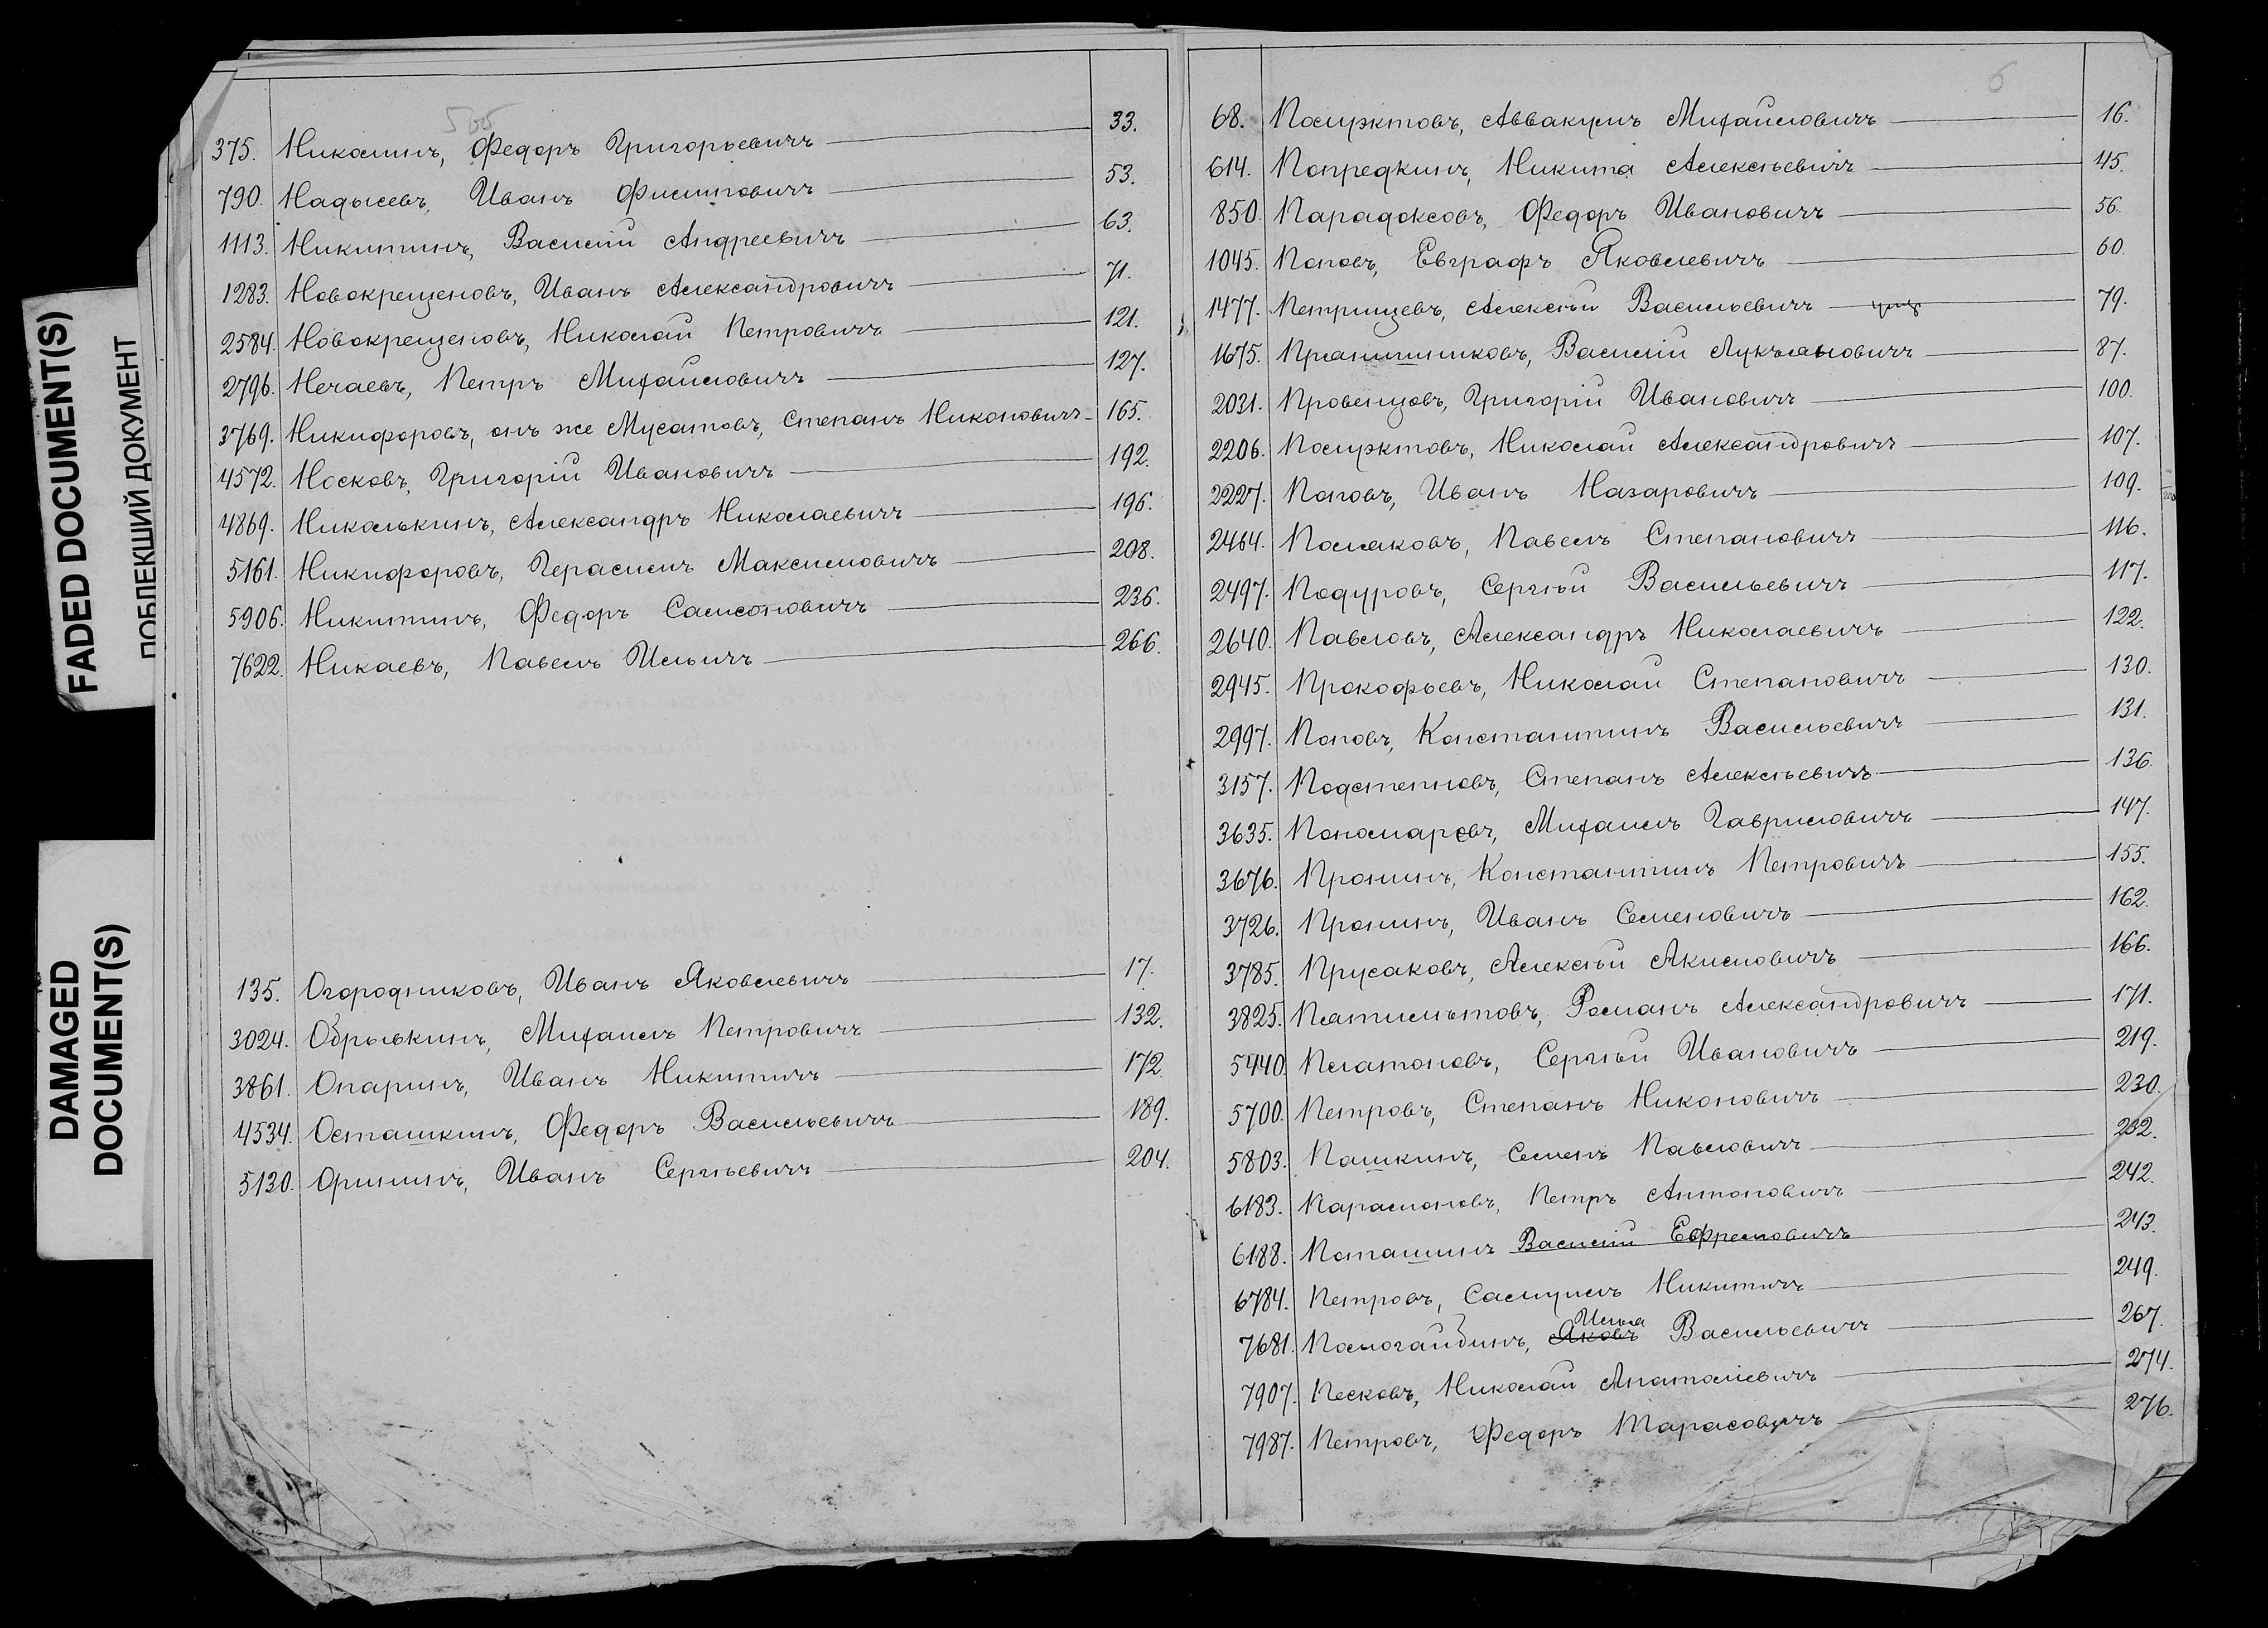 FADED DOCUMENT(S)
ПОБЛЕКШИЙ ДОКУМЕНТ
DAMAGED
DOCUMENT(S)
375. Николинъ, Федоръ Григорьевичъ 33.
790. Надысевъ, Иванъ Филиповичъ 53.
1113. Никитинъ, Василій Андреевичъ 63.
1283. Новокрещеновъ, Иванъ Александровичъ 71.
2584. Новокрещеновъ, Николай Петровичъ 121.
2796. Нечаевъ, Петръ Михайловичъ 127.
3769. Никифоровъ, онъ же Мусатовъ, Степанъ Никоновичъ 165.
4572. Носковъ, Григорій Ивановичъ 192.
4869. Николькинъ, Александръ Николаевичъ 196.
5161. Никифоровъ, Герасимъ Максимовичъ 208.
5906. Никитинъ, Федоръ Самсоновичъ 236.
7622. Никаевъ, Павелъ Ильичъ 266.
135. Огородниковъ, Иванъ Яковлевичъ 17.
3024. Обрывкинъ, Михаилъ Петровичъ 132.
3861. Опаринъ, Иванъ Никитичъ 172.
4534. Осташкинъ, Федоръ Васильевичъ 189.
5130. Орининъ, Иванъ Сергѣевичъ 204.
6
68. Полуэктовъ, Аввакумъ Михайловичъ 16.
614. Попредкинъ, Никита Алексѣевичъ 45.
850. Парадоксовъ, Федоръ Ивановичъ 56.
1045. Поповъ, Евграфъ Яковлевичъ 60.
1477. Петрищевъ, Алексѣй Васильевичъ 79.
1675. Пряничниковъ, Василій Лукьяновичъ 87.
2031. Провенцовъ, Григорій Ивановичъ 100.
2206. Полуэктовъ, Николай Александровичъ 107.
2227. Поповъ, Иванъ Назаровичъ 109.
2464. Поляковъ, Павелъ Степановичъ 116.
2497. Подуровъ, Сергѣй Васильевичъ 117.
2640. Павловъ, Александръ Николаевичъ 122.
2945. Прокофьевъ, Николай Степановичъ 130.
2997. Поповъ, Константинъ Васильевичъ 131.
3157. Подстепновъ, Степанъ Алексѣевичъ 136.
3635. Пономаревъ, Михаилъ Гавриловичъ 147.
3676. Пронинъ, Константинъ Петровичъ 155.
3726. Пронинъ, Иванъ Семеновичъ 162.
3785. Прусаковъ, Алексѣй Акимовичъ 166.
3825. Пятилѣтовъ, Романъ Александровичъ 171.
5440. Платоновъ, Сергѣй Ивановичъ 219.
5700. Петровъ, Степанъ Никоновичъ 230.
5803. Пашкинъ, Семенъ Павловичъ 232.
6183. Парамоновъ, Петръ Антоновичъ 242.
6188. Поташинъ Василій Ефремовичъ 243.
6784. Петровъ, Самуилъ Никитичъ 249.
Илья
7681. Помогайбинъ, Яковъ Васильевичъ 267.
7907. Песковъ, Николай Анатоліевичъ 274.
7987. Петровъ, Федоръ Тарасовичъ 276.